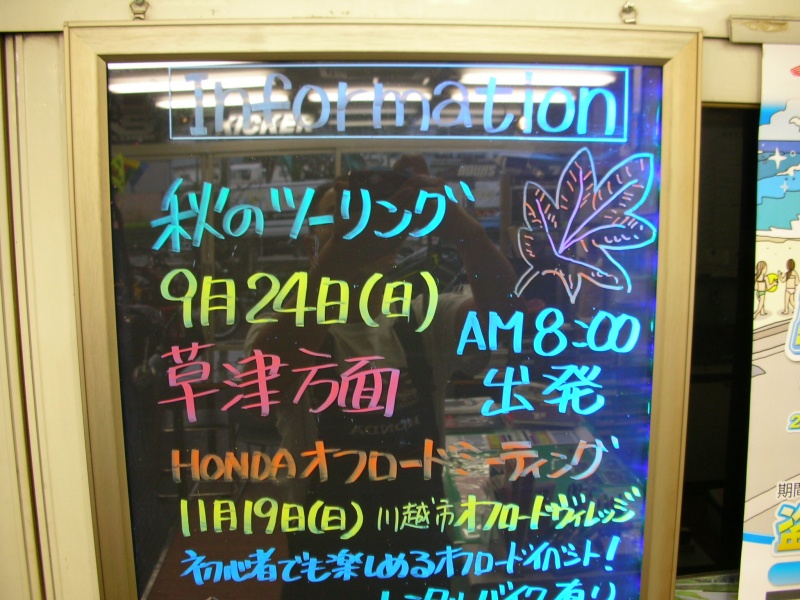 Information
KICKER
秋のツーリング
9月24日(日)
草津方面
AM8:00
出発
HONDAオフロードミーティング
11月19日(日) 川越市オフロードヴィレッジ
初心者でも楽しめるオフロードイベント!
レンタルバイク有り
期間